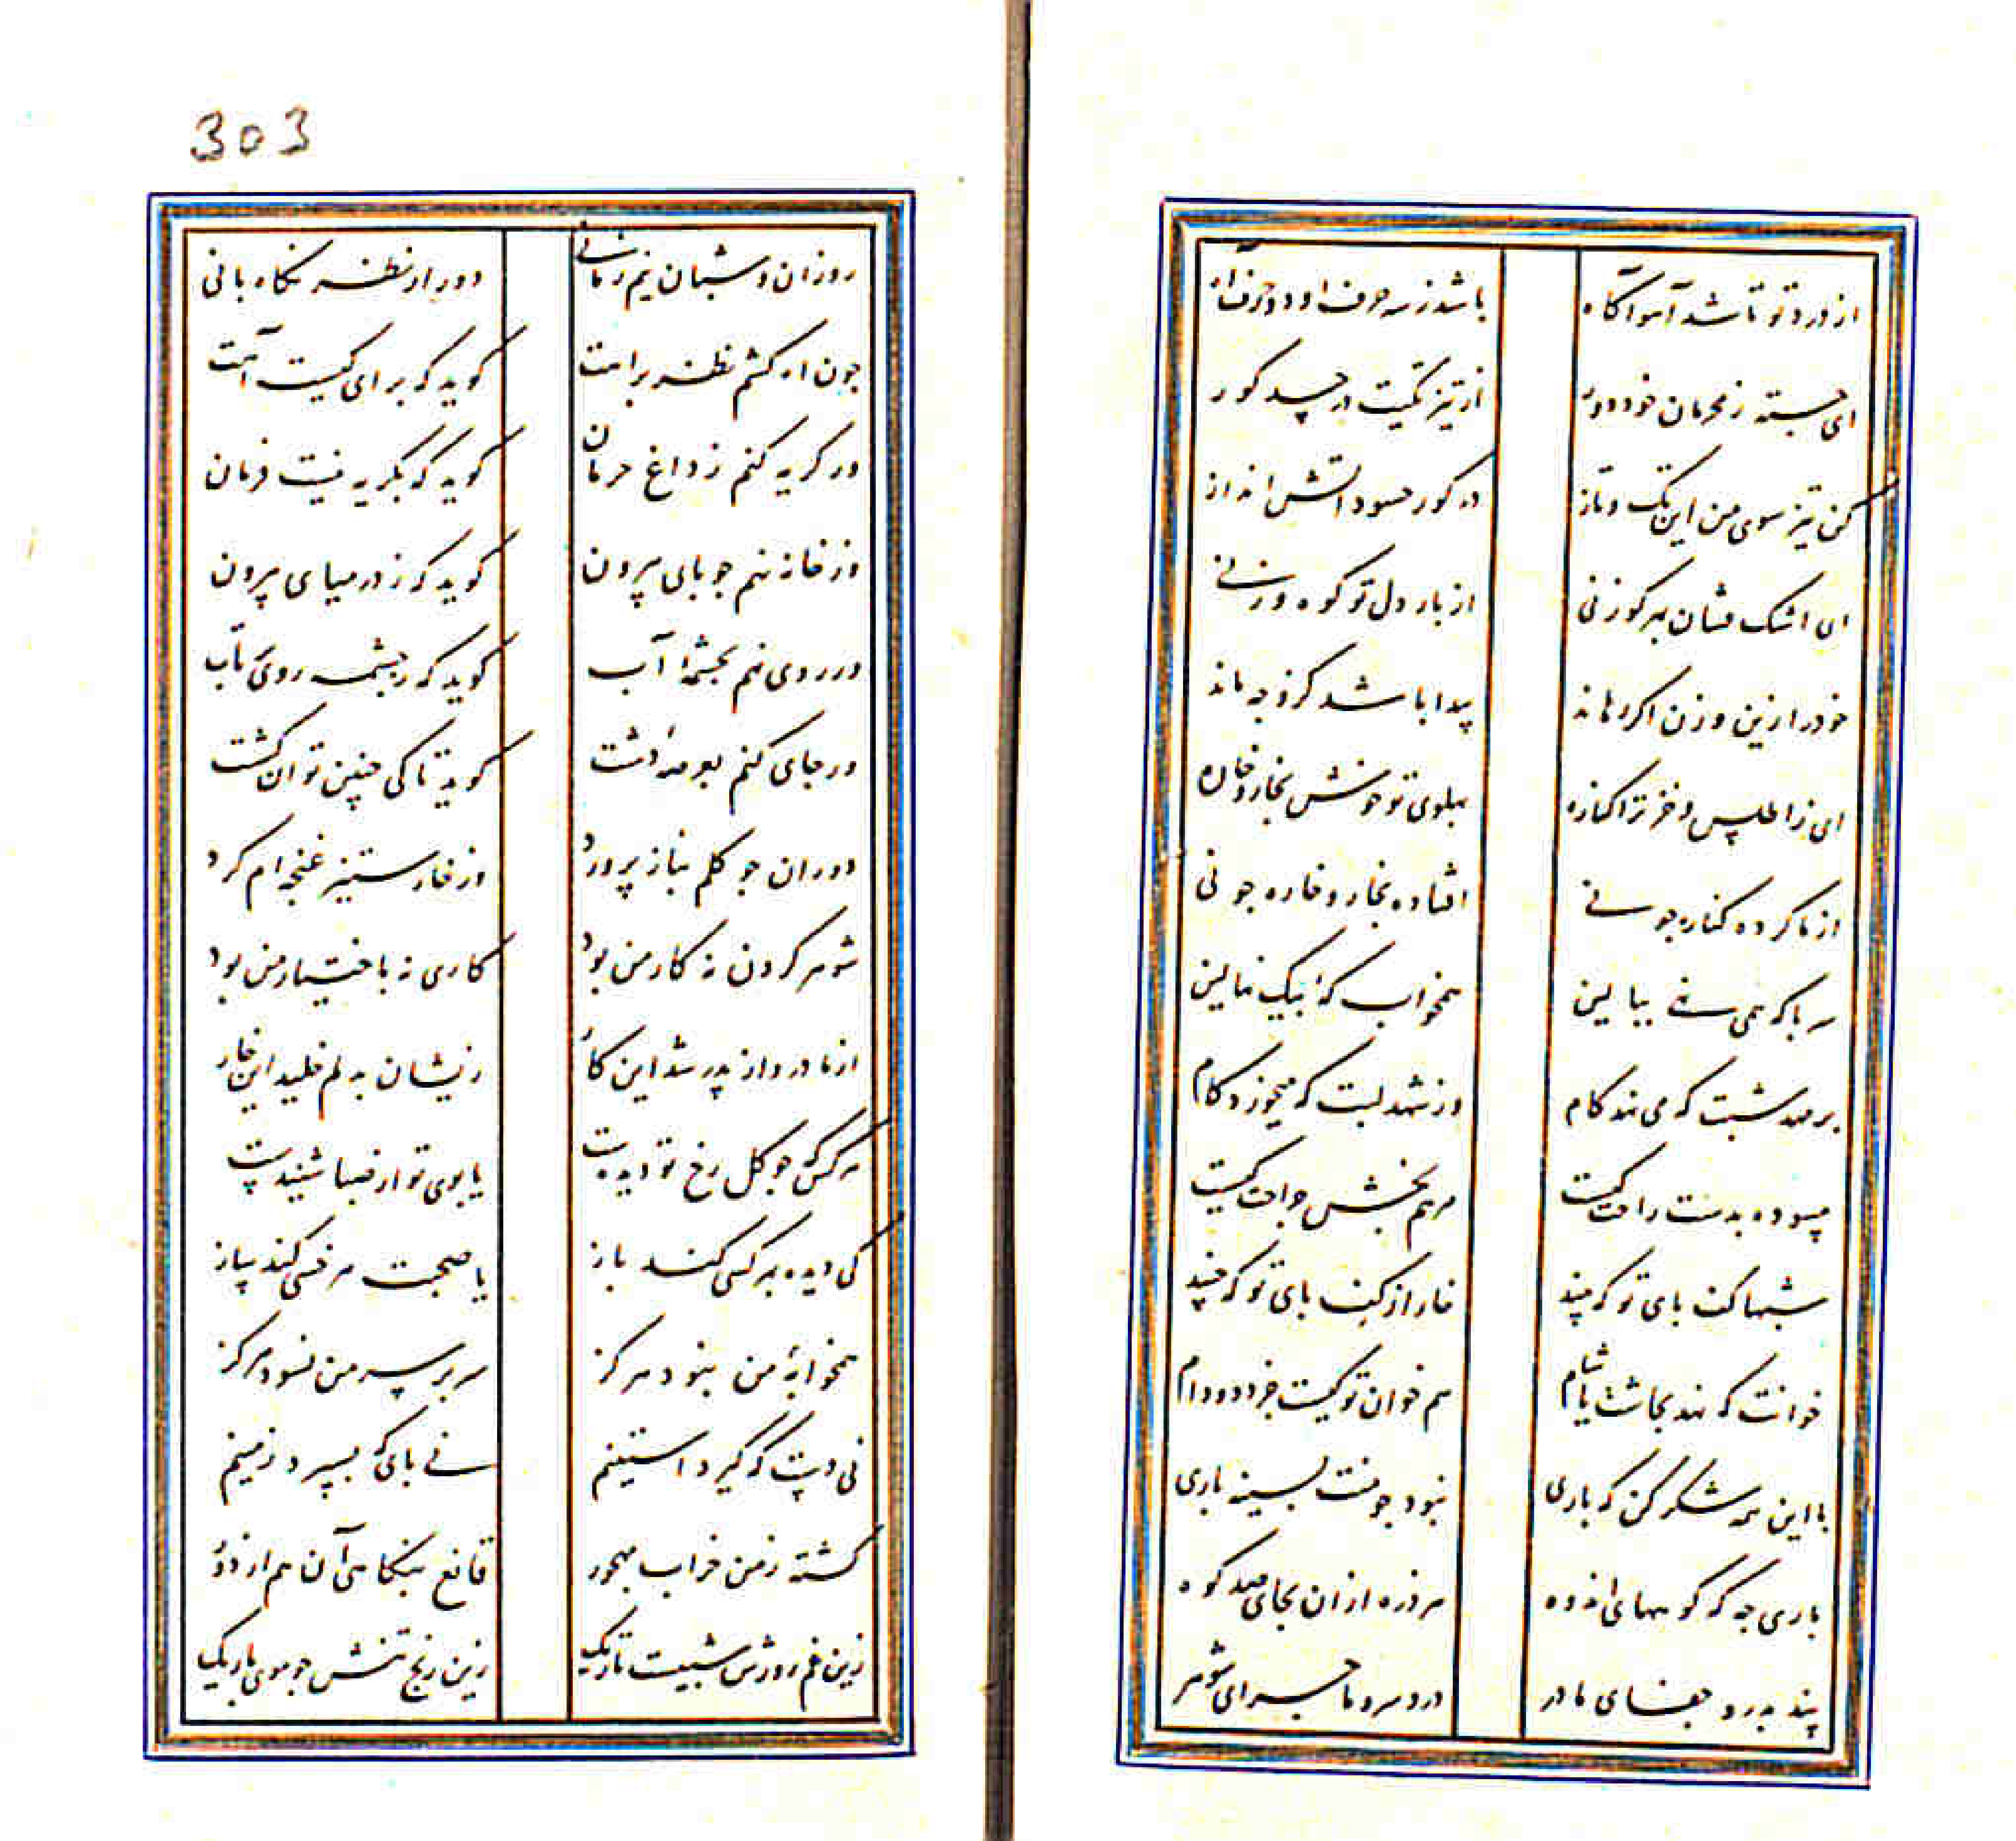 از درد تو تا شد آهو آگاه
باشد ز سه حرف او دو حرف آه
ای جسته ز محرمان خود دور
از تیز تکیت در حسد گور
کن تیز سوی من این تک و تاز
در کور حسود آتش انداز
ای اشک فشان بهر گوزنی
از بار دل تو کوه وزنی
خود را ازین وزن اگر رهاند
پیدا باشد کزو چه ماند
ای ز اطلس و خز ترا کناره
پهلوی تو خوش بخار و خاره
از ما کرده کناره چونی
افتاده بخار و خاره چونی
سر با که همی نهی ببالین
همخواب که ایبیک نهالین
بر مهد شبت که می نهد کام
وز شهد لبت که میخورد کام
پیسوده بدست راحت کیست
مرهم بخش جراحت کیست
شبها کف پای تو که بیند
خار از کف پای تو که چیند
خوانت که نهد بچاشت یا شام
هم خوان تو کیست جز دد و دام
با این همه شکر کن که باری
نبود چو منت بسینه باری
باری چه که کوههای اندوه
هر ذره ازان بجای صد کوه
پند پدر و جفای مادر
درد سر و ماجرای شوهر
303
روزان و شبان نیم زمانی
دور از نظر نگاه بانی
چون اه کشم نظر براهت
گوید که برای کیست آهت
ور گریه کنم ز داغ حرمان
گوید که بگریه نیست فرمان
وز خانه نهم چو پای بیرون
گوید که ز در میای بیرون
ور روی نهم بچشمه آب
گوید که ز چشمه روی بر تاب
ور جای کنم بعرصه دشت
گوید تا کی چنین توان گشت
دوران چو گلم بناز پرورد
وز خار ستیز غنچه ام کرد
شوهر کردن نه کار من بود
کاری نه باختیار من بود
از مادر و از پدر شد این کار
زیشان بدلم خلید این خار
هر کس که چو گل رخ تو دیدست
یا بوی تو از صبا شنیدست
کی دیده بهر کسی کند باز
یا صحبت هر خسی کند ساز
همخوابه من نبود هرگز
سر بر سر من نسود هرگز
نی دست که گیرد استینم
نی پای که بسپرد زمینم
گشته ز من خراب مهجور
قانع بنگاهی آن هم از دور
زین غم روزش شبیست تاریک
زین رنج تنش چو موی باریک